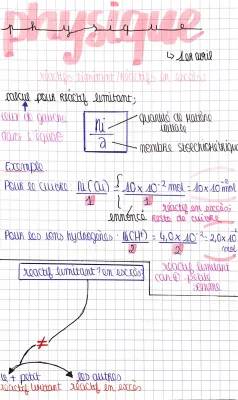 physique
↳ 1er avril
réactif limitant/réactif en excès:
calcul pour réactif limitant;
ceux de gauche
dans l'équa°
ni/a
quantité de matière initiale
nombre stoechiométrique
Exemple
Pour le cuivre ni(Cu)/1 = 10 × 10⁻² mol/1 = 10 × 10⁻² mol
énnencé
réactif en excès:
reste de cuivre
Pour les ions hydrogènes: ni(H⁺)/2 = 4,0 × 10⁻²/2 = 2,0 × 10⁻² mol
réactif limitant
car + petite
réactif limitant? en excès
≠
le + petit
réactif limitant
les autres
réactif en excès